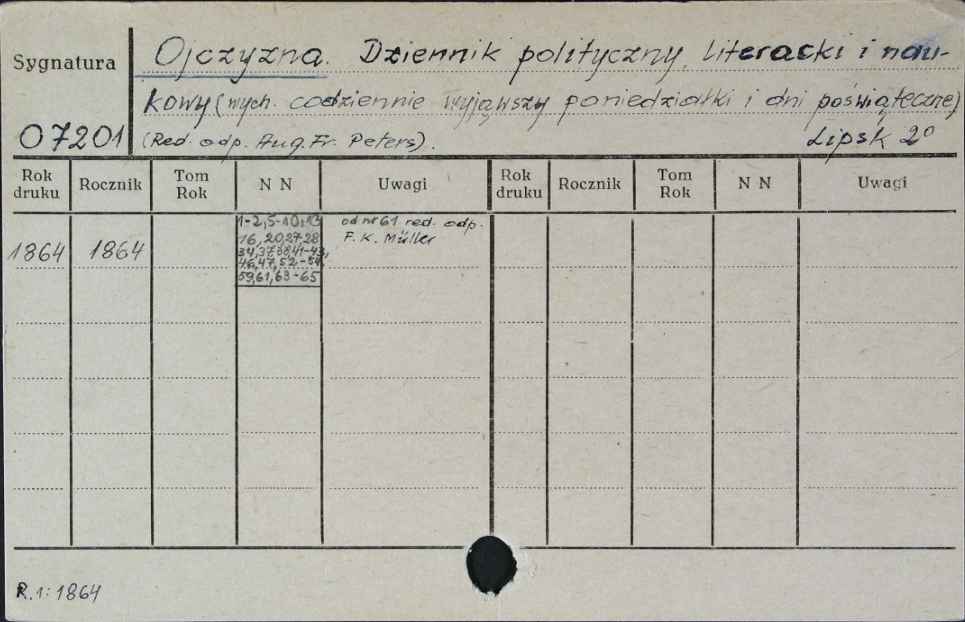 Sygnatura
Ojczyzna. Dziennik polityczny, literacki i nau-
kowy (wych. codziennie wyjąwszy poniedziałki i dni poświąteczne)
07201 (Red. odp. Aug. Fr. Peters). Lipsk 2°
Rok druku Rocznik Tom Rok N N Uwagi Rok druku Rocznik Tom Rok N N Uwagi
1864 1864
1-2,5-10,13
16,20,27-28
34,37,38,41-43,
46,47,52-54,
59,61,63-65
od nr 61 red. odp.
F. K. Müller
R.1:1864